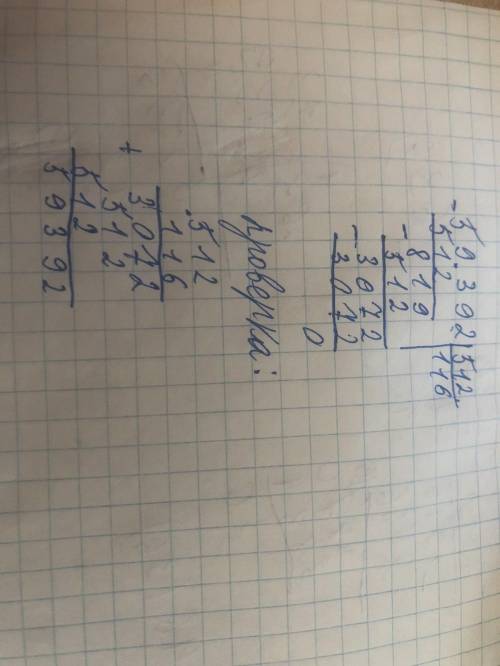 -59392|512
512 |116
-819
512
-3072
3072
0
проверка:
.512
116
3072
+ 512
512
59392